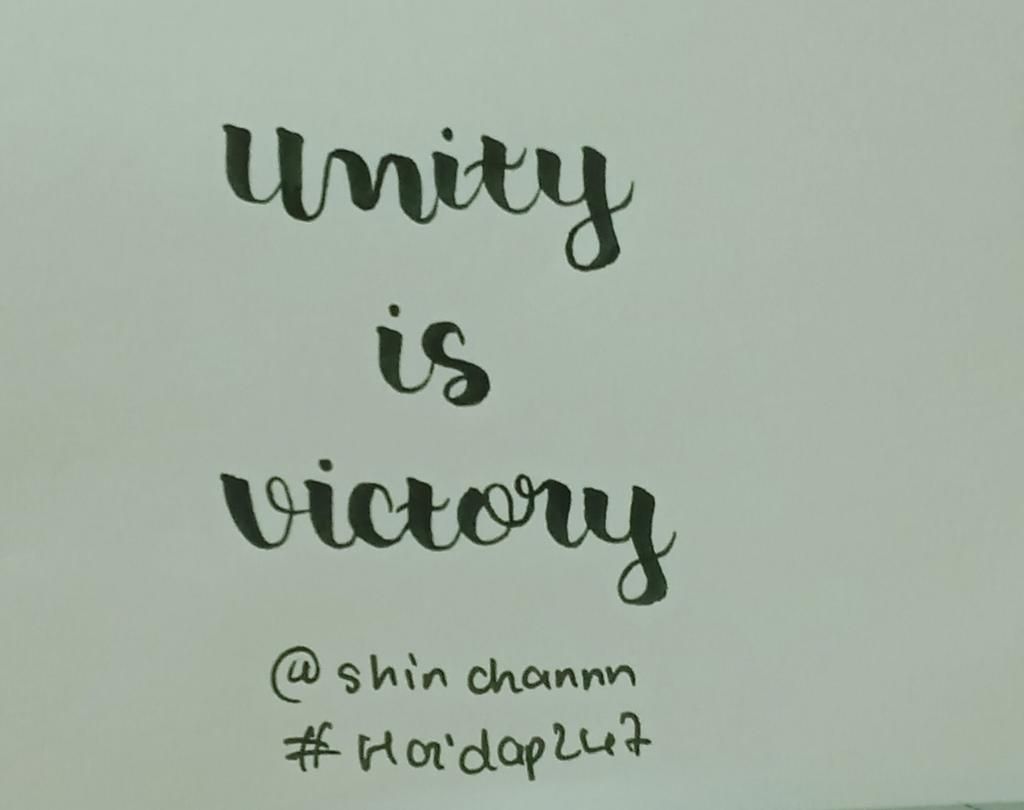 Unity
is
victory
@shin channn
#Hoidap247